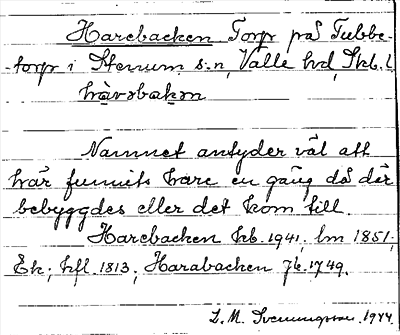 Harebacken Torp på Tubbe-
torp i Stenum s:n, Valle hd, Skb. l
hàrəbakən
Namnet antyder väl att
här funnits hare en gång då där
bebyggdes eller det kom till.
Harebacken kb. 1941, lm 1851,
Ek; hfl. 1813; Harabacken jb. 1749.
L. M. Svenungsson. 1944